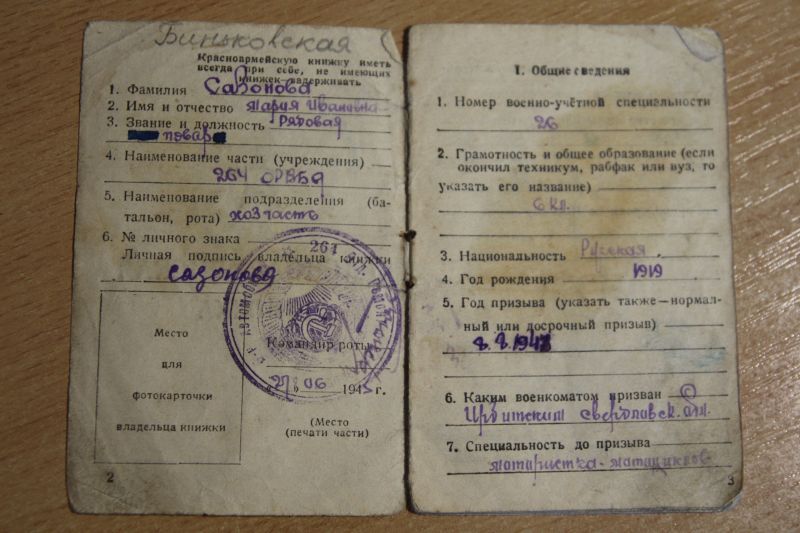 Биньковская
Красноармейскую книжку иметь
всегда при себе, не имеющих
книжек—задерживать
1. Фамилия Сазонова
2. Имя и отчество Мария Ивановна
3. Звание и должность Рядовая
повар
4. Наименование части (учреждения)
264
5. Наименование подразделения (ба-
тальон, рота) хозчасть
6. № личного знака
Личная подпись владельца книжки
Сазонова
261
Место
для
фотокарточки
владельца книжки
Командир роты
"27" 06 1945 г.
(Место
печати части)
2
1. Общие сведения
1. Номер военно-учётной специальности
26
2. Грамотность и общее образование (если
окончил техникум, рабфак или вуз, то
указать его название)
6 кл.
3. Национальность Русская
4. Год рождения 1919
5. Год призыва (указать также—нормаль-
ный или досрочный призыв)
6. Каким военкоматом призван
Ирбитским свердловск. обл.
7. Специальность до призыва
3